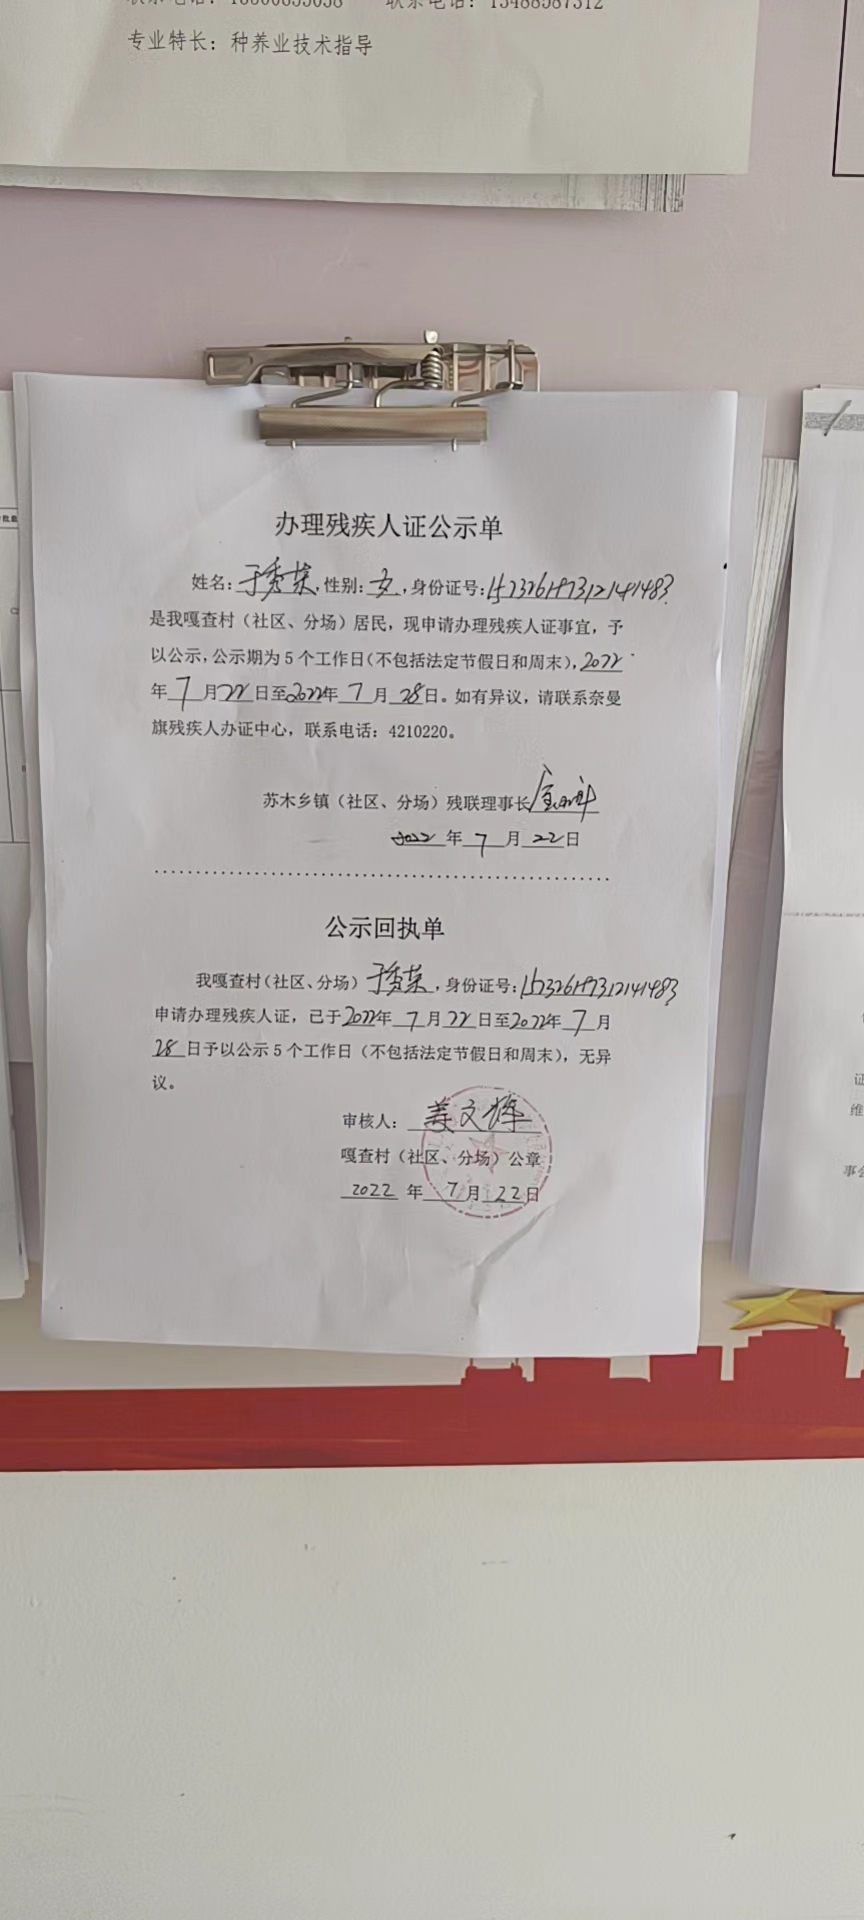 专业特长：种养业技术指导
办理残疾人证公示单
姓名：于秀荣，性别：女，身份证号：152326197312141483
是我嘎查村（社区、分场）居民，现申请办理残疾人证事宜，予
以公示，公示期为5个工作日（不包括法定节假日和周末），2022
年7月22日至2022年7月28日。如有异议，请联系奈曼
旗残疾人办证中心，联系电话：4210220。
苏木乡镇（社区、分场）残联理事长
2022年7月22日
公示回执单
我嘎查村（社区、分场）于秀荣，身份证号：152326197312141483
申请办理残疾人证，已于2022年7月22日至2022年7月
28日予以公示5个工作日（不包括法定节假日和周末），无异
议。
审核人：姜文辉
嘎查村（社区、分场）公章
2022年7月22日
证
维